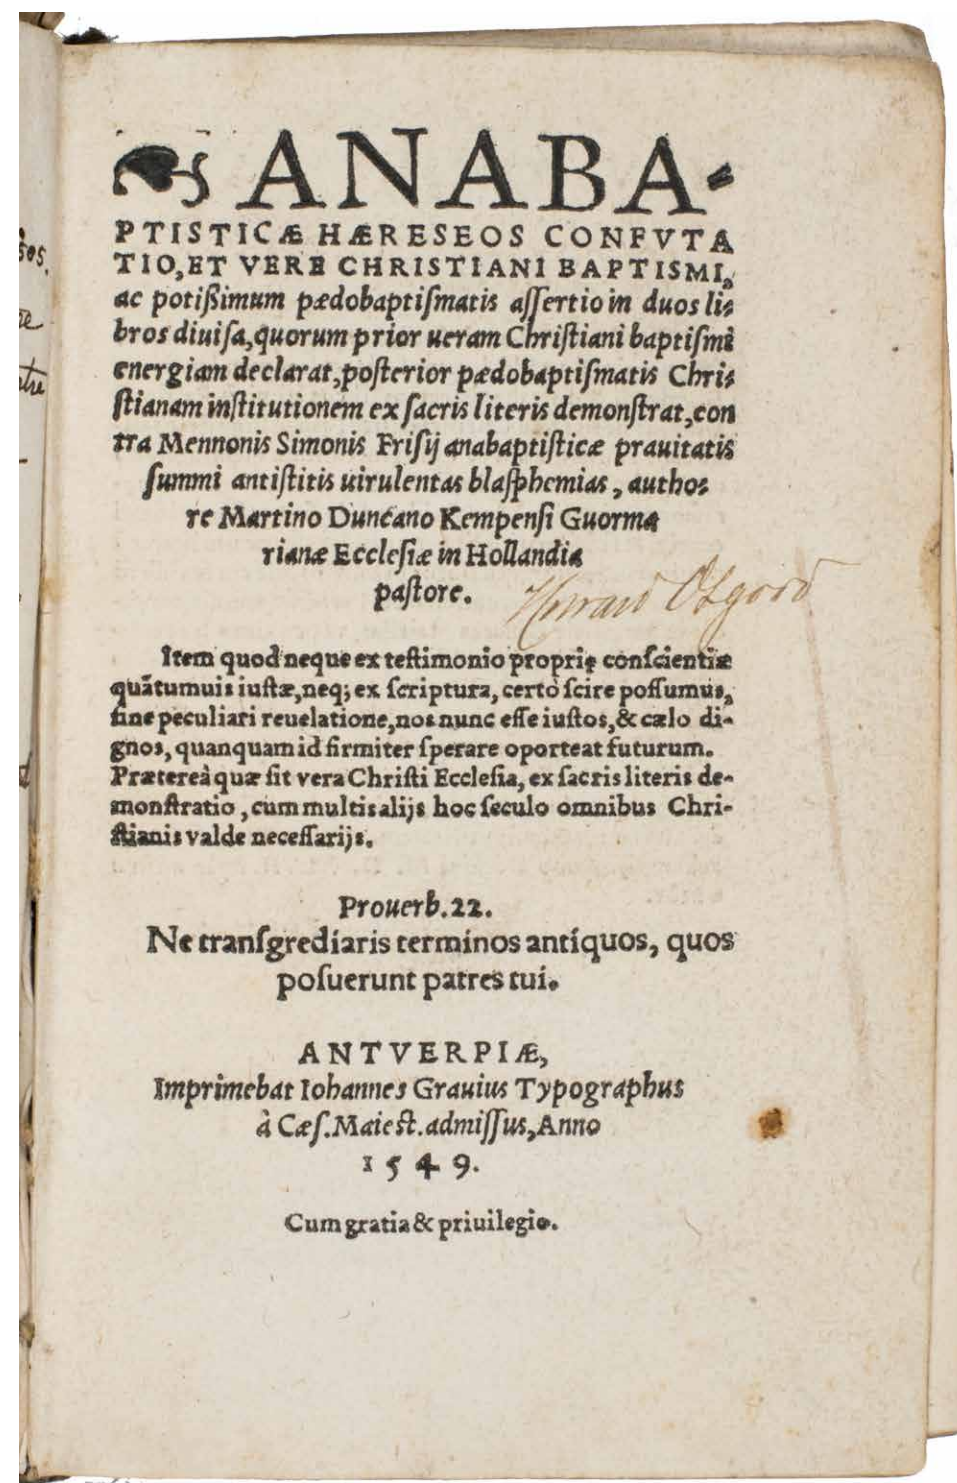 ANABA-
PTISTICÆ HÆRESEOS CONFVTA
TIO, ET VERE CHRISTIANI BAPTISMI,
ac potißimum pædobaptiſmatis aſſertio in duos li-
bros diuiſa, quorum prior ueram Chriſtiani baptiſmi
energiam declarat, poſterior pædobaptiſmatis Chri-
ſtianam inſtitutionem ex ſacris literis demonſtrat, con
tra Mennonis Simonis Friſij anabaptiſticæ prauitatis
ſummi antiſtitis uirulentas blaſphemias, autho-
re Martino Duncano Kempenſi Guorma
rianæ Eccleſiæ in Hollandia
paſtore.
Howard Oſgood
Item quod neque ex teſtimonio proprię conſcientiæ
quãtumuis iuſtæ, neq; ex ſcriptura, certò ſcire poſſumus,
ſine peculiari reuelatione, nos nunc eſſe iuſtos, & cælo di-
gnos, quanquam id firmiter ſperare oporteat futurum.
Prætereà quæ ſit vera Chriſti Eccleſia, ex ſacris literis de-
monſtratio, cum multis alijs hoc ſeculo omnibus Chri-
ſtianis valde neceſſarijs.
Prouerb. 22.
Ne tranſgrediaris terminos antíquos, quos
poſuerunt patres tui.
ANTVERPIÆ,
Imprimebat Iohannes Grauius Typographus
à Cæſ. Maieſt. admiſſus, Anno
1549.
Cum gratia & priuilegio.